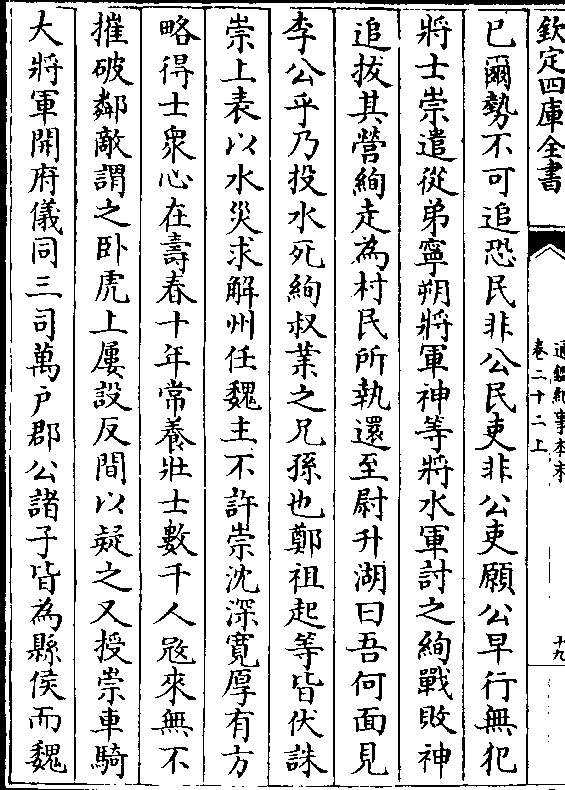 欽定四庫全書
通鑑紀事本末
卷二十二上
十九
已爾勢不可追恐民非公民吏非公吏願公早行無犯
將士崇遣從弟寧朔將軍神等將水軍討之絢戰敗神
追拔其營絢走為村民所執還至尉升湖曰吾何面見
李公乎乃投水死絢叔業之兄孫也鄭祖起等皆伏誅
崇上表以水災求解州任魏主不許崇沈深寛厚有方
略得士衆心在壽春十年常養壯士數千人冦來無不
摧破鄰敵謂之卧虎上屢設反間以疑之又授崇車騎
大將軍開府儀同三司萬戶郡公諸子皆為縣侯而魏